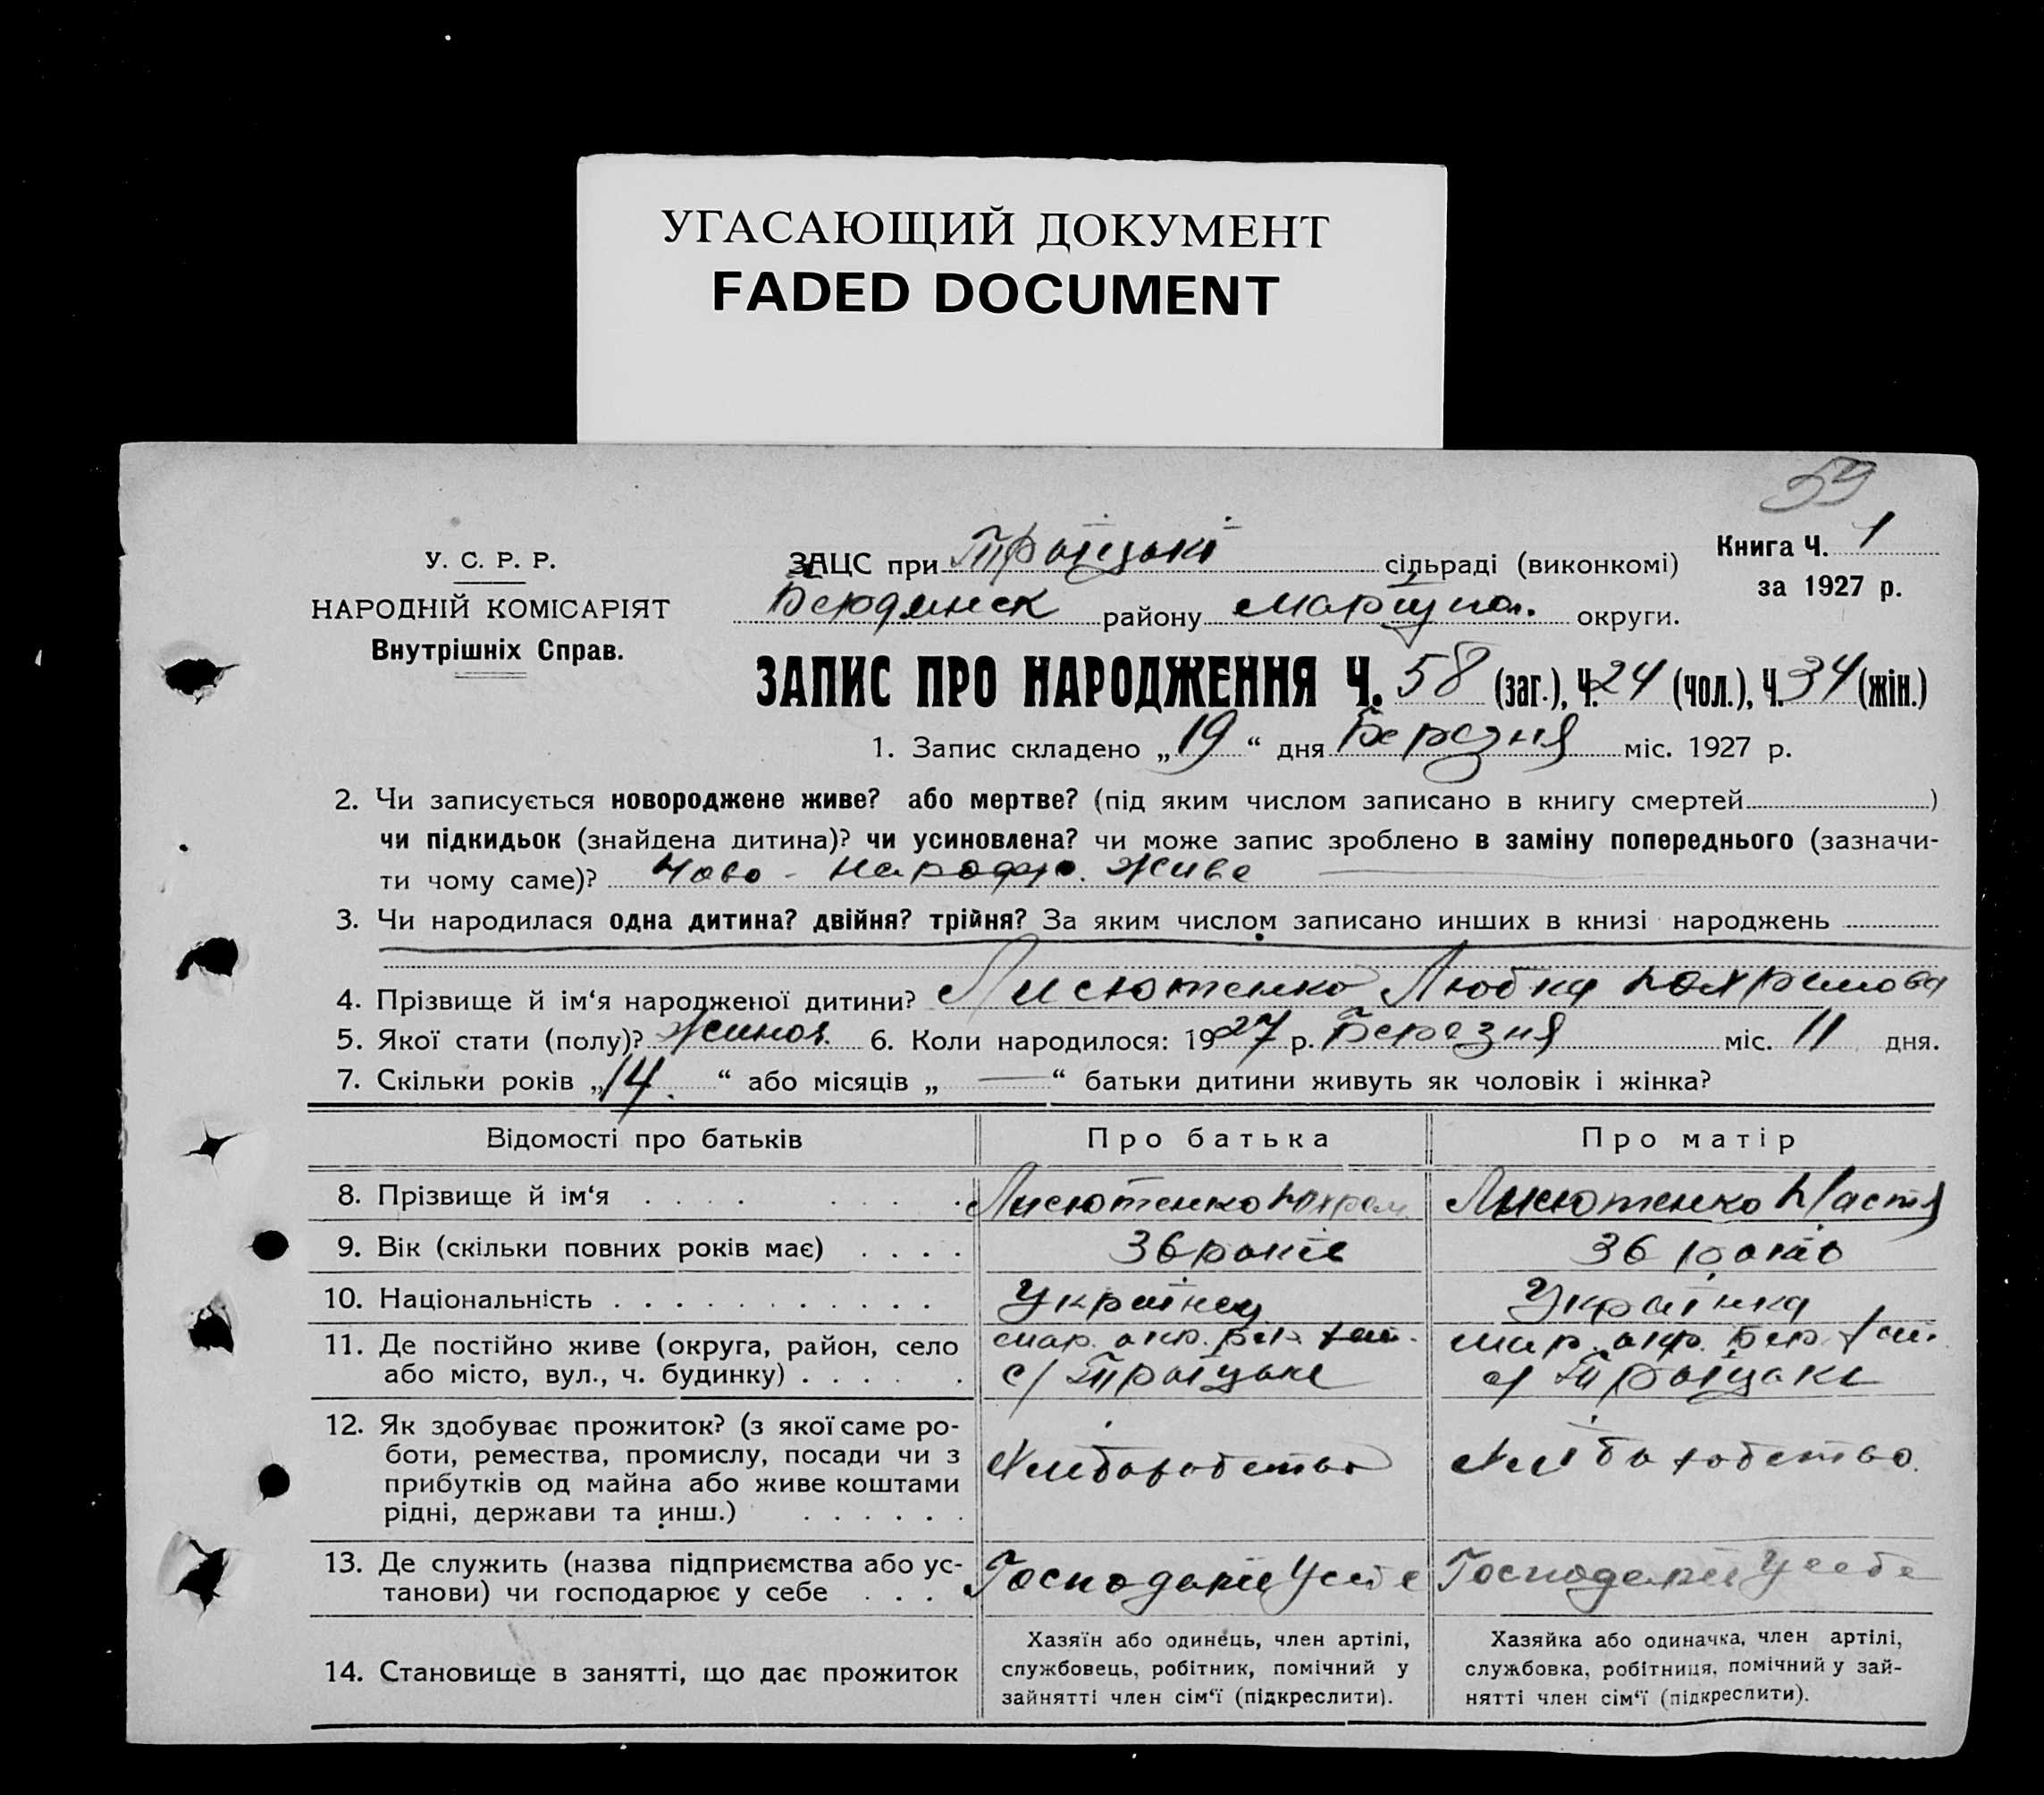 УГАСАЮЩИЙ ДОКУМЕНТ
FADED DOCUMENT
59
У. С. Р. Р.
НАРОДНІЙ КОМІСАРІЯТ
Внутрішніх Справ.
ЗАЦС при Троїцькі сільраді (виконкомі)
Книга Ч. 1
за 1927 р.
Бердянск району Маріупол. округи.
ЗАПИС ПРО НАРОДЖЕННЯ Ч. 58 (заг.), Ч. 24 (чол.), Ч. 34 (жін.)
1. Запис складено „19“ дня Березня міс. 1927 р.
2. Чи записується новороджене живе? або мертве? (під яким числом записано в книгу смертей)
чи підкидьок (знайдена дитина)? чи усиновлена? чи може запис зроблено в заміну попереднього (зазначи-
ти чому саме)? Ново - народж. живе
3. Чи народилася одна дитина? двійня? трійня? За яким числом записано инших в книзі народжень
4. Прізвище й ім‘я народженої дитини? Лисютенко Любка
5. Якої стати (полу)? Жиноч. 6. Коли народилося: 1927 р. Березня міс. 11 дня.
7. Скільки років „14.“ або місяців „ — “ батьки дитини живуть як чоловік і жінка?
Відомості про батьків Про батька Про матір
8. Прізвище й ім‘я Лисютенко Лисютенко Настя
9. Вік (скільки повних років має) 36 років 36 років
10. Національність Українец Українка
11. Де постійно живе (округа, район, село Мар. окр. Бер. Мар. окр. Бер.
або місто, вул., ч. будинку) с/ Троїцьке с/ Троїцьке
12. Як здобуває прожиток? (з якої саме ро-
боти, ремества, промислу, посади чи з Хлиборобство Хліборобство.
прибутків од майна або живе коштами
рідні, держави та инш.)
13. Де служить (назва підприємства або ус- Господарює У себе Господарює У себе
танови) чи господарює у себе
14. Становище в занятті, що дає прожиток
Хазяїн або одинець, член артілі,
службовець, робітник, помічний у
зайнятті член сім‘ї (підкреслити).
Хазяйка або одиначка, член артілі,
службовка, робітниця, помічний у зай-
нятті член сім‘ї (підкреслити).